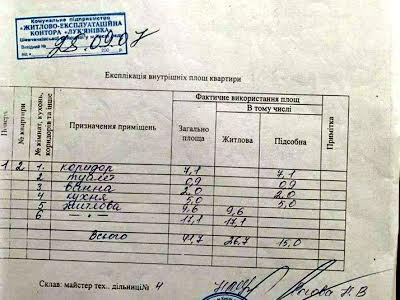 Комунальне підприємство
«ЖИТЛОВО-ЕКСПЛУАТАЦІЙНА
КОНТОРА «ЛУК'ЯНІВКА»
25.09.07
Експлікація внутрішніх площ квартири
Поверх
№ квартири
№ кімнат, кухонь, коридорів та інше
Призначення приміщень
Фактичне використання площ
Загально площа
В тому числі
Житлова
Підсобна
Примітка
1 2 1. коридор 7,1 7,1
2 туалет 0,9 0,9
3 ванна 2,0 2,0
4 кухня 5,0 5,0
5 житлова 9,6 9,6
6 — " — 17,1 17,1
Всього 41,7 26,7 15,0
Склав: майстер тех.. дільниці № 4